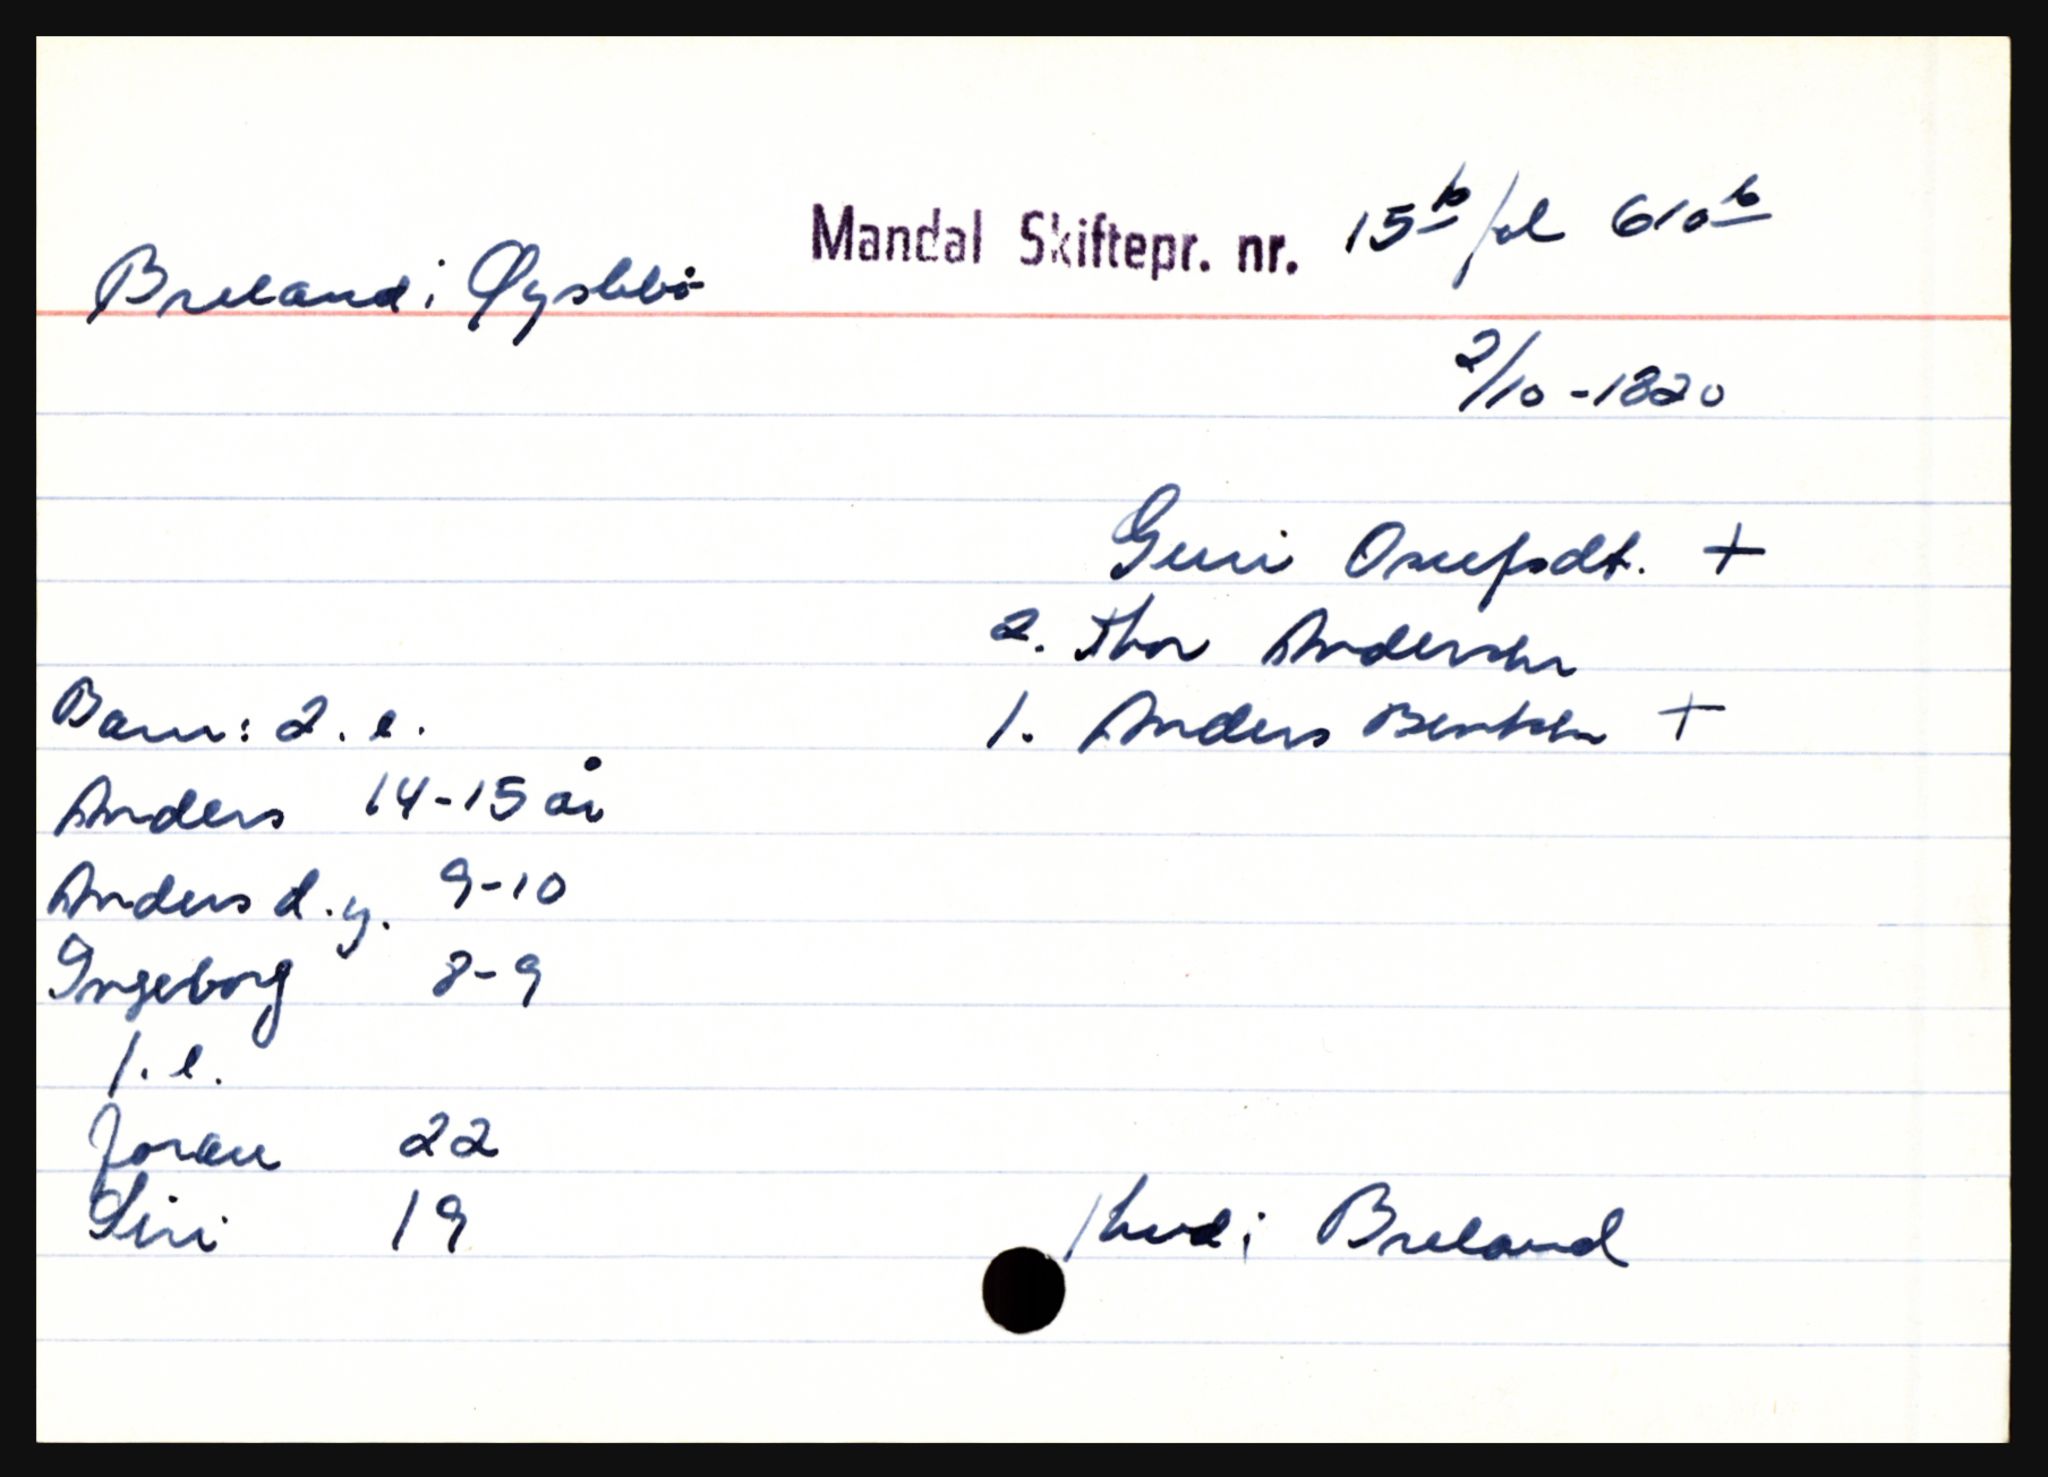 Mandal Skiftepr. nr. 15b fol 610b
Breland i Øyslebø
2/10 - 1820
Guri Osufsdt. +
2. Thor Andersen
1. Anders Bentsen +
Barn: 2. e.
Anders 14-15 år
Anders d.y. 9-10
Ingeborg 8-9
1. e.
Joran 22
Siri 19
Breland